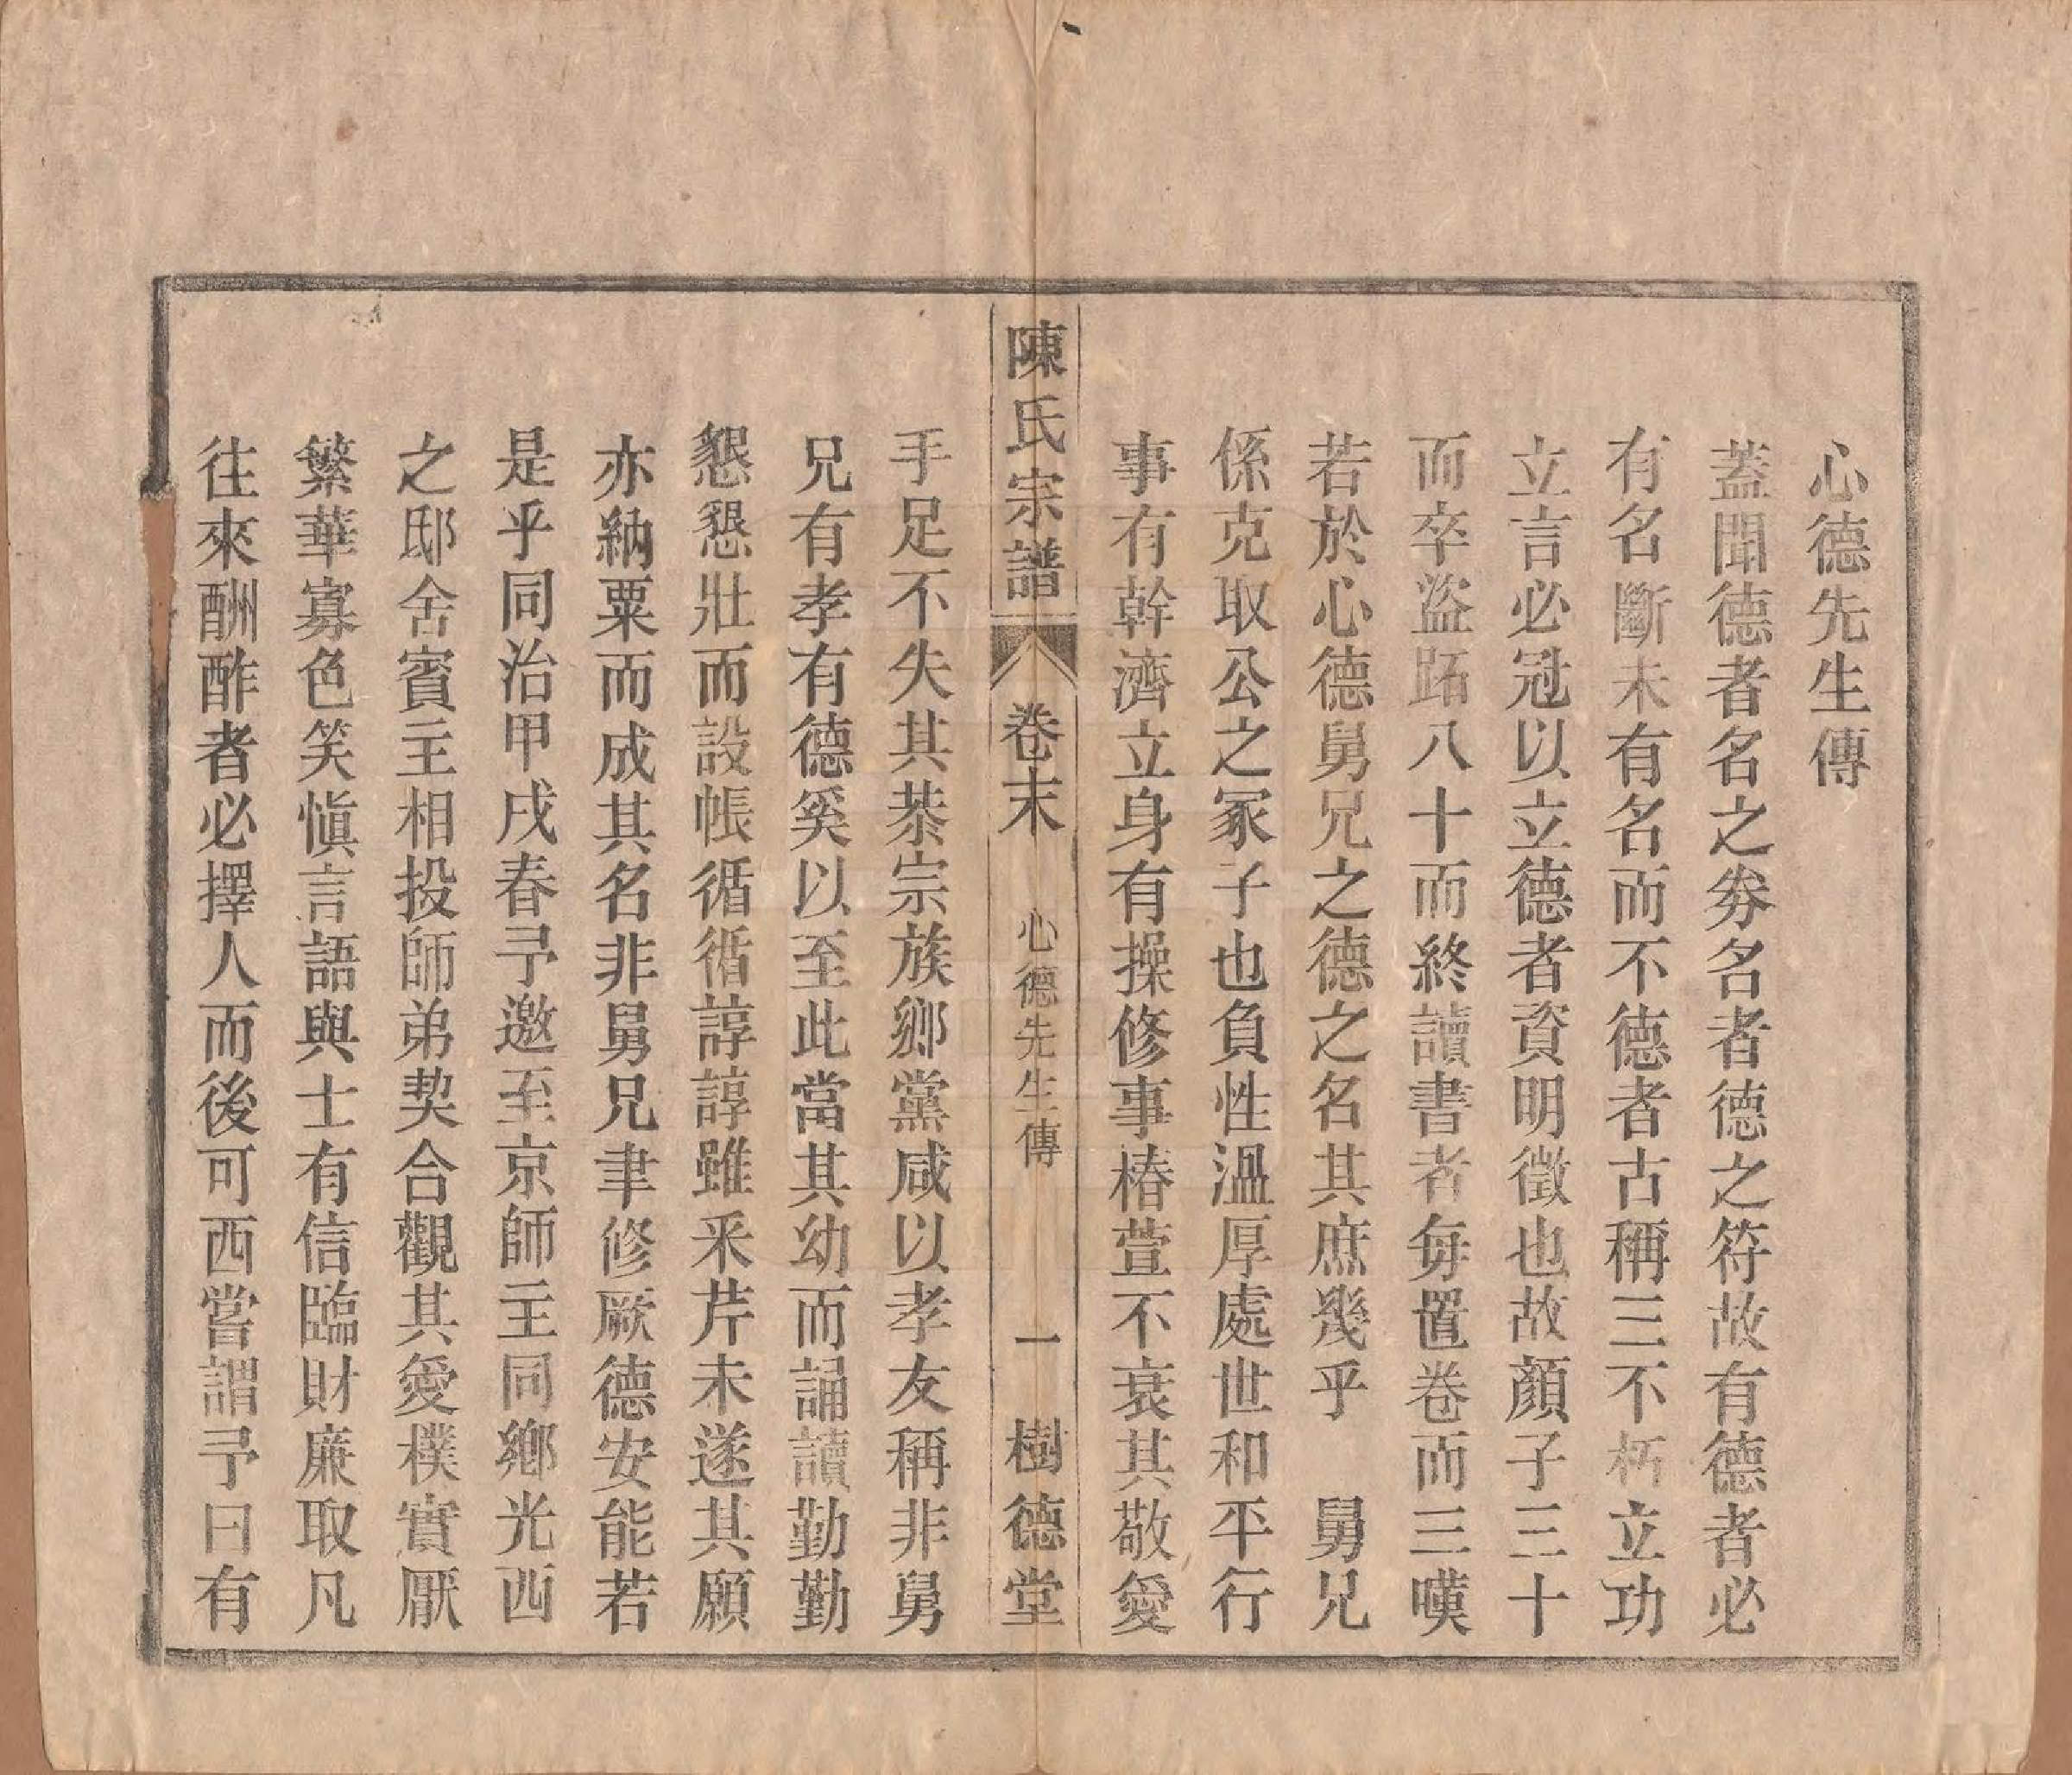 心德先生傳
蓋聞德者名之券名者德之符故有德者必
有名斷未有名而不德者古稱三不朽立功
立言必冠以立德者資明徵也故顏子三十
而卒盜跖八十而終讀書者每置卷而三嘆
若於心德舅兄之德之名其庶幾乎　舅兄
係克取公之冢子也負性溫厚處世和平行
事有幹濟立身有操修事椿萱不衰其敬愛
陳氏宗譜　卷末　心德先生傳　一　樹德堂
手足不失其恭宗族鄉黨咸以孝友稱非舅
兄有孝有德奚以至此當其幼而誦讀勤勤
懇懇壯而設帳循循諄諄雖釆芹未遂其願
亦納粟而成其名非舅兄聿修厥德安能若
是乎同治甲戌春予邀至京師主同鄉光西
之邸舍賓主相投師弟契合觀其愛樸實厭
繁華寡色笑愼言語與士有信臨財廉取凡
往來酬酢者必擇人而後可西嘗謂予曰有